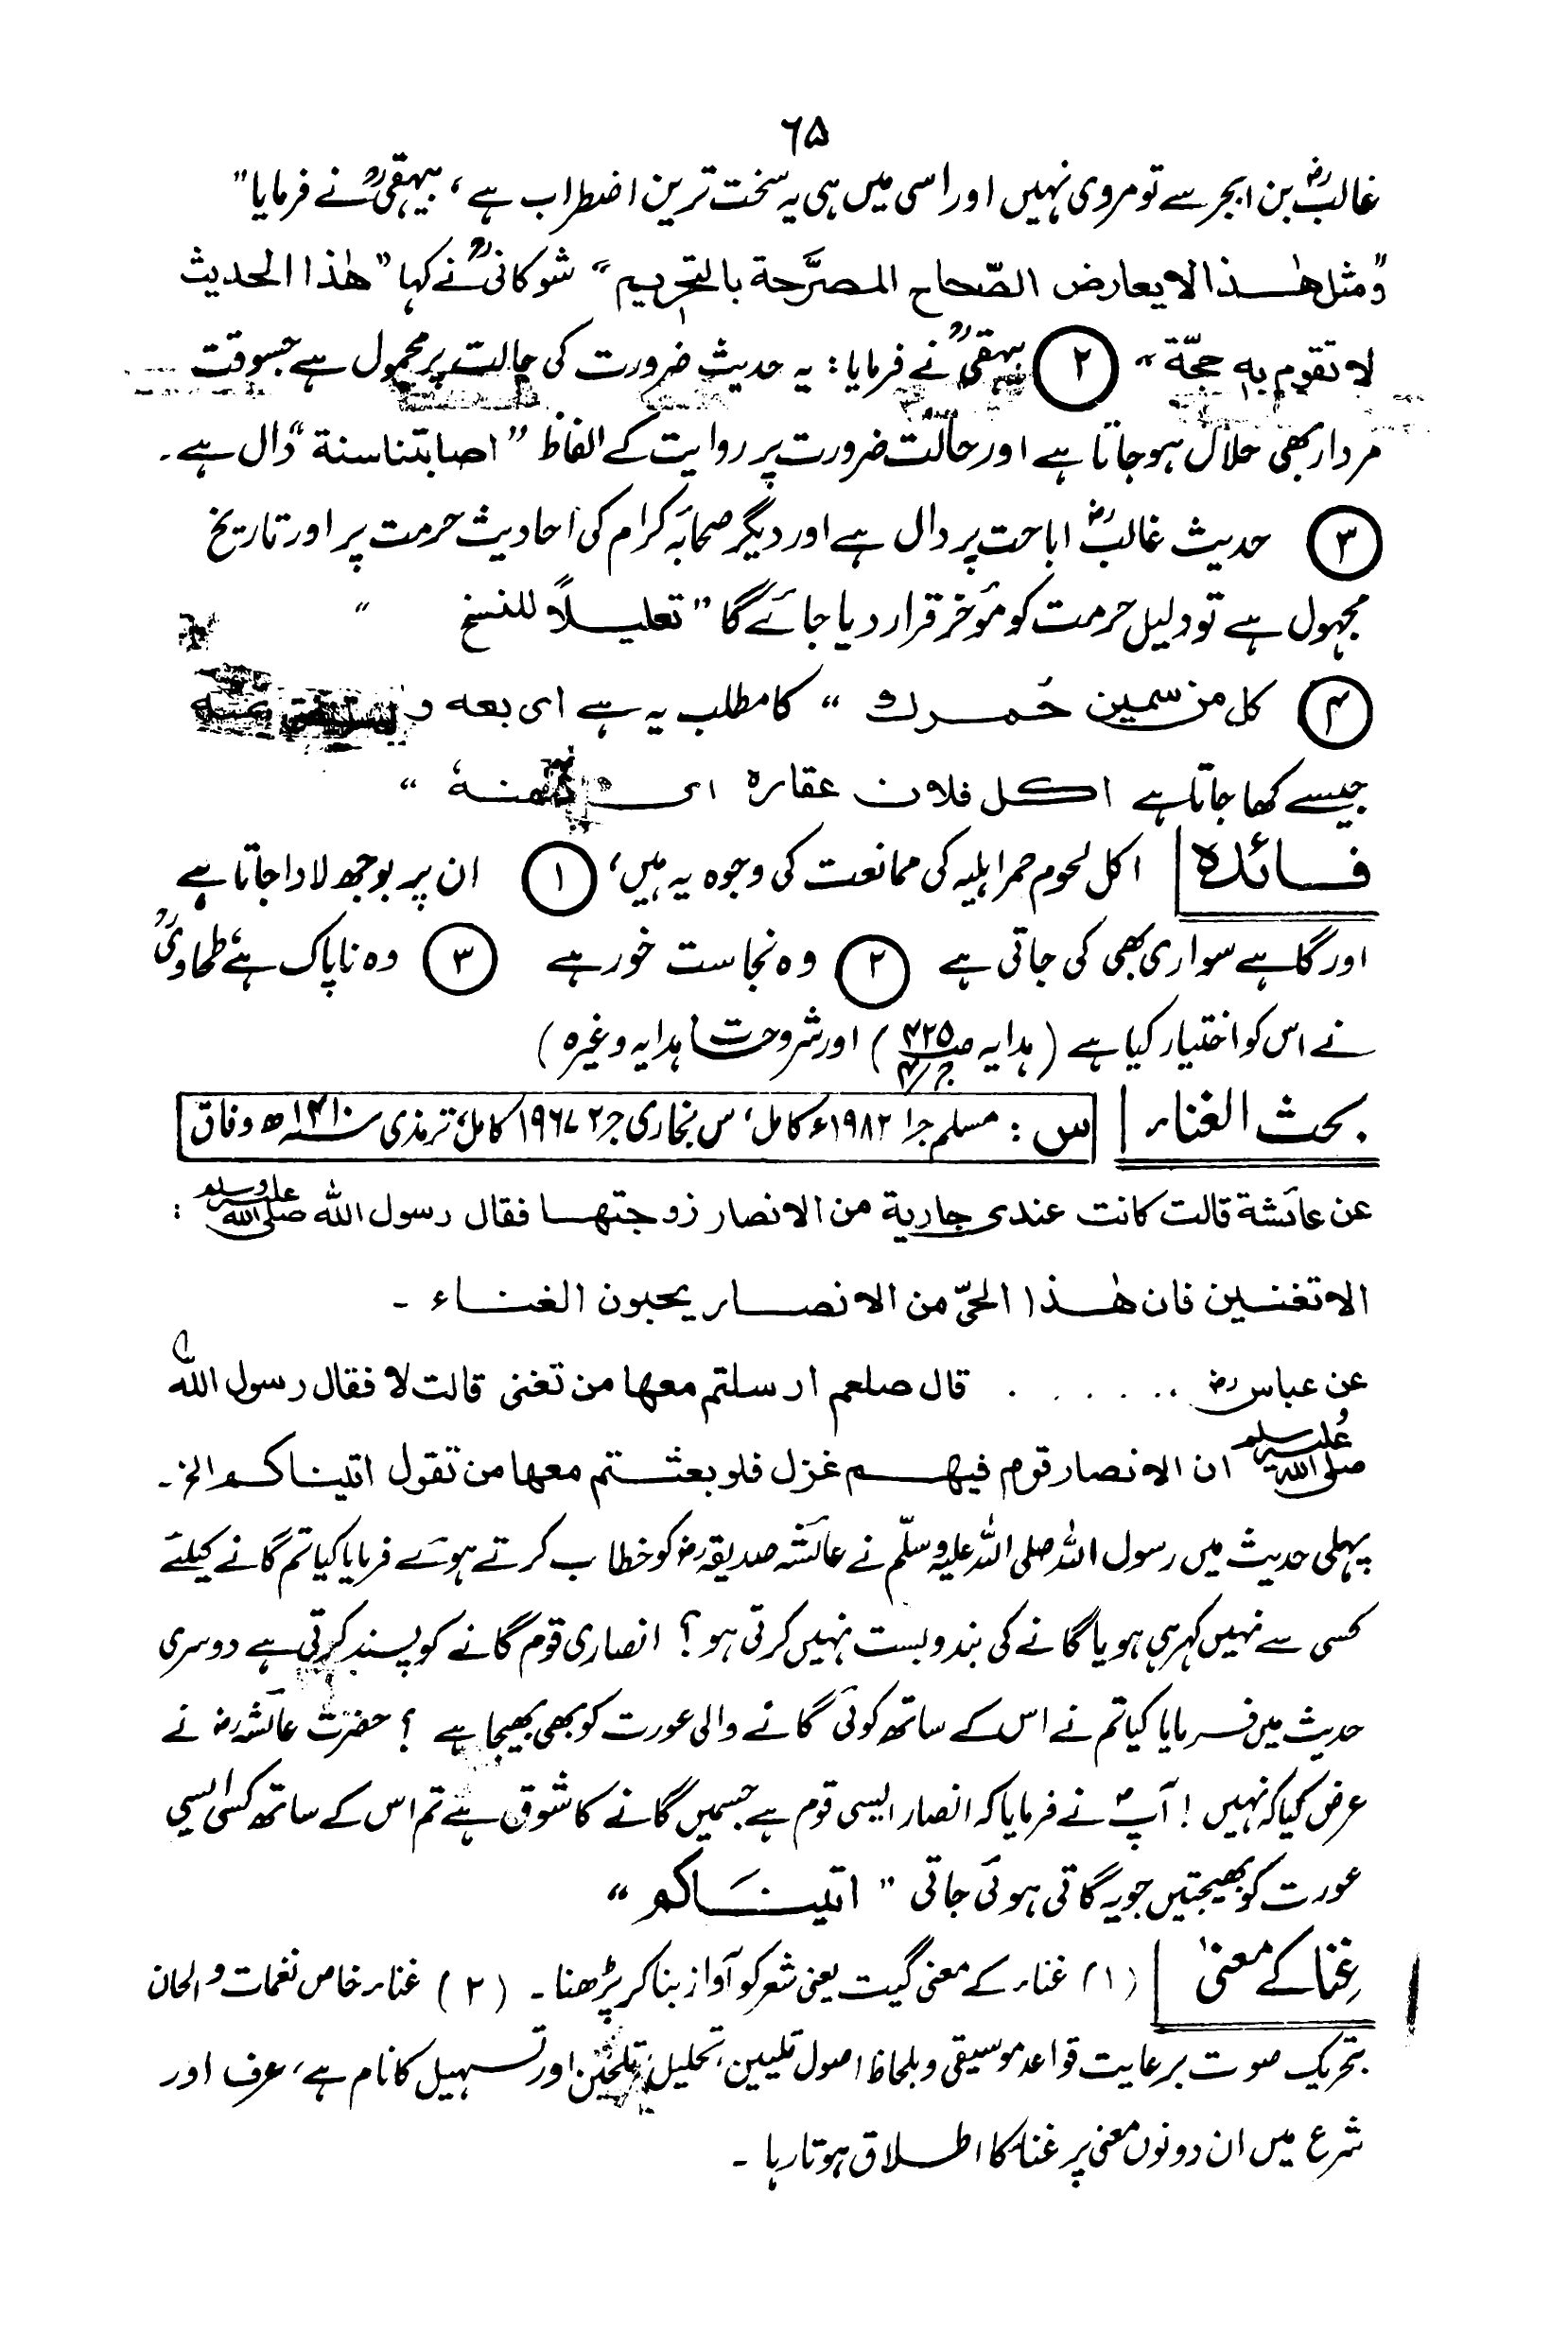 ٦٥
غالبؓ بن ابجر سے تو مروی نہیں اور اسی میں ہی یہ سخت ترین اضطراب ہے، بیہقیؒ نے فرمایا "
"ومثل هٰذا لا یعارض الصّحاح المصرَّحة بالتحریم" شوکانیؒ نے کہا "هٰذا الحدیث
لا تقوم به حجّة" ② بیہقیؒ نے فرمایا: یہ حدیث ضرورت کی حالت پر محمول ہے جسوقت
مردار بھی حلال ہو جاتا ہے اور حالت ضرورت پر روایت کے الفاظ "اصابتنا سنة" دال ہے۔
③ حدیث غالبؓ اباحت پر دال ہے اور دیگر صحابہ کرام کی احادیث حرمت پر اور تاریخ
مجہول ہے تو دلیل حرمت کو مؤخر قرار دیا جائے گا "تعلیلاً للنسخ "
④ کل من سمین حُمرك " کا مطلب یہ ہے ای بعه و
جیسے کھا جاتا ہے اکل فلان عقاره ای ثمنهٗ "
فائدہ اکل لحوم حمر اہلیہ کی ممانعت کی وجوہ یہ ہیں، ① ان پر بوجھ لادا جاتا ہے
اور گاہے سواری بھی کی جاتی ہے ② وہ نجاست خور ہے ③ وہ ناپاک ہے، طحاویؒ
نے اس کو اختیار کیا ہے (ہدایہ صـ۴۲۵ ج/۴) اور شروحت ہدایہ وغیرہ)
بحث الغناء س: مسلم جـ۱ ۱۹۸۲ء کامل، س بخاری جـ۲ ۱۹۶۷ کامل، ترمذی سنہ ۱۴۱۰ھ وفاق
عن عائشة قالت کانت عندی جاریة من الانصار زوجتها فقال رسول الله صلى الله عليه وسلم :
الا تغنین فان هٰذا الحیّ من الانصار یحبون الغناء ۔
عن عباس رض ...... قال صلعم ارسلتم معها من تغنی قالت لا فقال رسول الله
صلى الله عليه وسلم ان الانصار قوم فیهم غزل فلو بعثتم معها من تقول اتیناکم الخ۔
پہلی حدیث میں رسول اللہ صلی اللہ علیہ وسلّم نے عائشہ صدیقہ رض کو خطاب کرتے ہوئے فرمایا کیا تم گانے کیلئے
کسی سے نہیں کہہ رہی ہو یا گانے کی بندوبست نہیں کرتی ہو؟ انصاری قوم گانے کو پسند کرتی ہے دوسری
حدیث میں فرمایا کیا تم نے اس کے ساتھ کوئی گانے والی عورت کو بھی بھیجا ہے ؟ حضرت عائشہ رض نے
عرض کیا کہ نہیں! آپؐ نے فرمایا کہ انصار ایسی قوم ہے جسمیں گانے کا شوق ہے تم اس کے ساتھ کسی ایسی
عورت کو بھیجتیں جو یہ گاتی ہوئی جاتی "اتیناکم"
غِنا کے معنیٰ (۱) غناء کے معنی گیت یعنی شعر کو آواز بنا کر پڑھنا۔ (۲) غناء خاص نغمات و الحان
بتحریک صوت برعایت قواعد موسیقی و بلحاظ اصول تلیین، تحلیل، تلحین اور تسہیل کا نام ہے، عرف اور
شرع میں ان دونوں معنی پر غنا کا اطلاق ہوتا رہا ۔